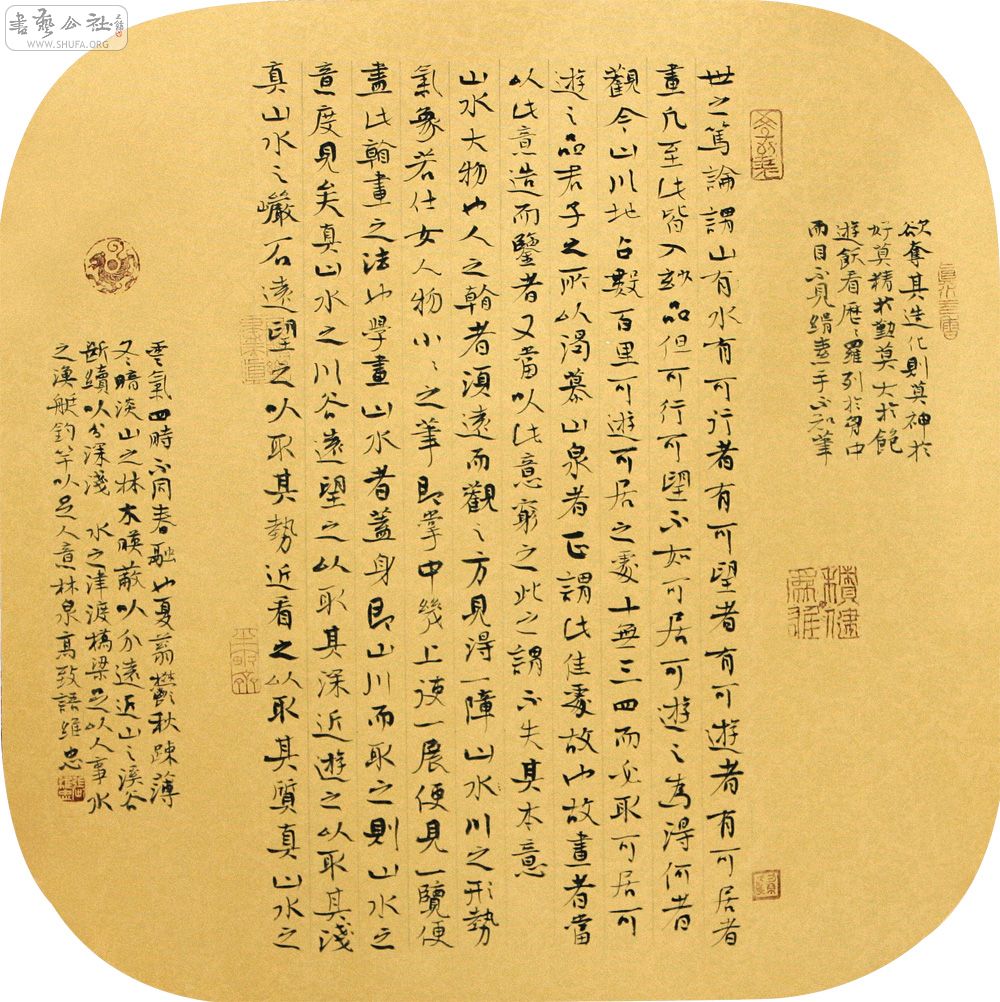 欲奪其造化則莫神於
好莫精於勤莫大於飽
遊飫看歷歷羅列於胷中
而目不見绢素手不知筆
世之篤論謂山有水有可行者有可望者有可遊者有可居者
畫凡至此皆入妙品但可行可望不如可居可遊之為得何者
觀今山川地占數百里可遊可居之處十無三四而必取可居可
遊之品君子之所以渴慕山泉者正謂此佳處故也故畫者當
以此意造而鑒者又當以此意窮之此之謂不失其本意
山水大物也人之翰者須遠而觀之方見得一障山水川之形勢
氣象若仕女人物小小之筆即掌中幾上一展便見一覽便
盡此翰畫之法也學畫山水者蓋身即山川而取之則山水之
意度見矣真山水之川谷遠望之以取其深近遊之以取其淺
真山水之巖石遠望之以取其勢近看之以取其質真山水之
雲氣四時不同春融也夏蓊鬱秋踈薄
冬暗淡山之林木暎蔽以分遠近山之溪谷
斷續以分深淺 水之津渡橋梁足以人事水
之漁艇釣竿以足人意林泉高致語維忠
書藝公社
WWW.SHUFA.ORG